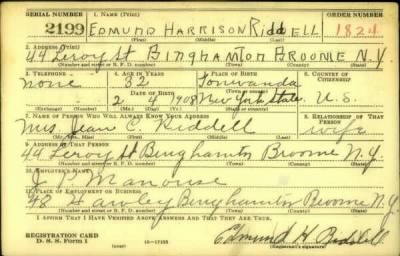 SERIAL NUMBER 1. NAME (Print) ORDER NUMBER
2199 EDMUND HARRISON RIDDELL 1824
(First) (Middle) (Last)
2. ADDRESS (Print)
44 Leroy St BINGHAMTON BROOME N.Y.
(Number and street or R. F. D. number) (Town) (County) (State)
3. TELEPHONE 4. AGE IN YEARS 5. PLACE OF BIRTH 6. COUNTRY OF CITIZENSHIP
none 32 Tonawanda
DATE OF BIRTH (Town or county)
2 4 1908 New York State U.S.
(Exchange) (Number) (Mo.) (Day) (Yr.) (State or country)
7. NAME OF PERSON WHO WILL ALWAYS KNOW YOUR ADDRESS 8. RELATIONSHIP OF THAT PERSON
Mrs Jean C. Riddell wife
(Mr., Mrs., Miss) (First) (Middle) (Last)
9. ADDRESS OF THAT PERSON
44 Leroy St Binghamton Broome N.Y.
(Number and street or R. F. D. number) (Town) (County) (State)
10. EMPLOYER'S NAME
J Manouse
11. PLACE OF EMPLOYMENT OR BUSINESS
48 Hawley Binghamton Broome N.Y.
(Number and street or R. F. D. number) (Town) (County) (State)
I AFFIRM THAT I HAVE VERIFIED ABOVE ANSWERS AND THAT THEY ARE TRUE.
REGISTRATION CARD
D. S. S. Form 1 16-17105 Edmund H Riddell
(Registrant's signature)